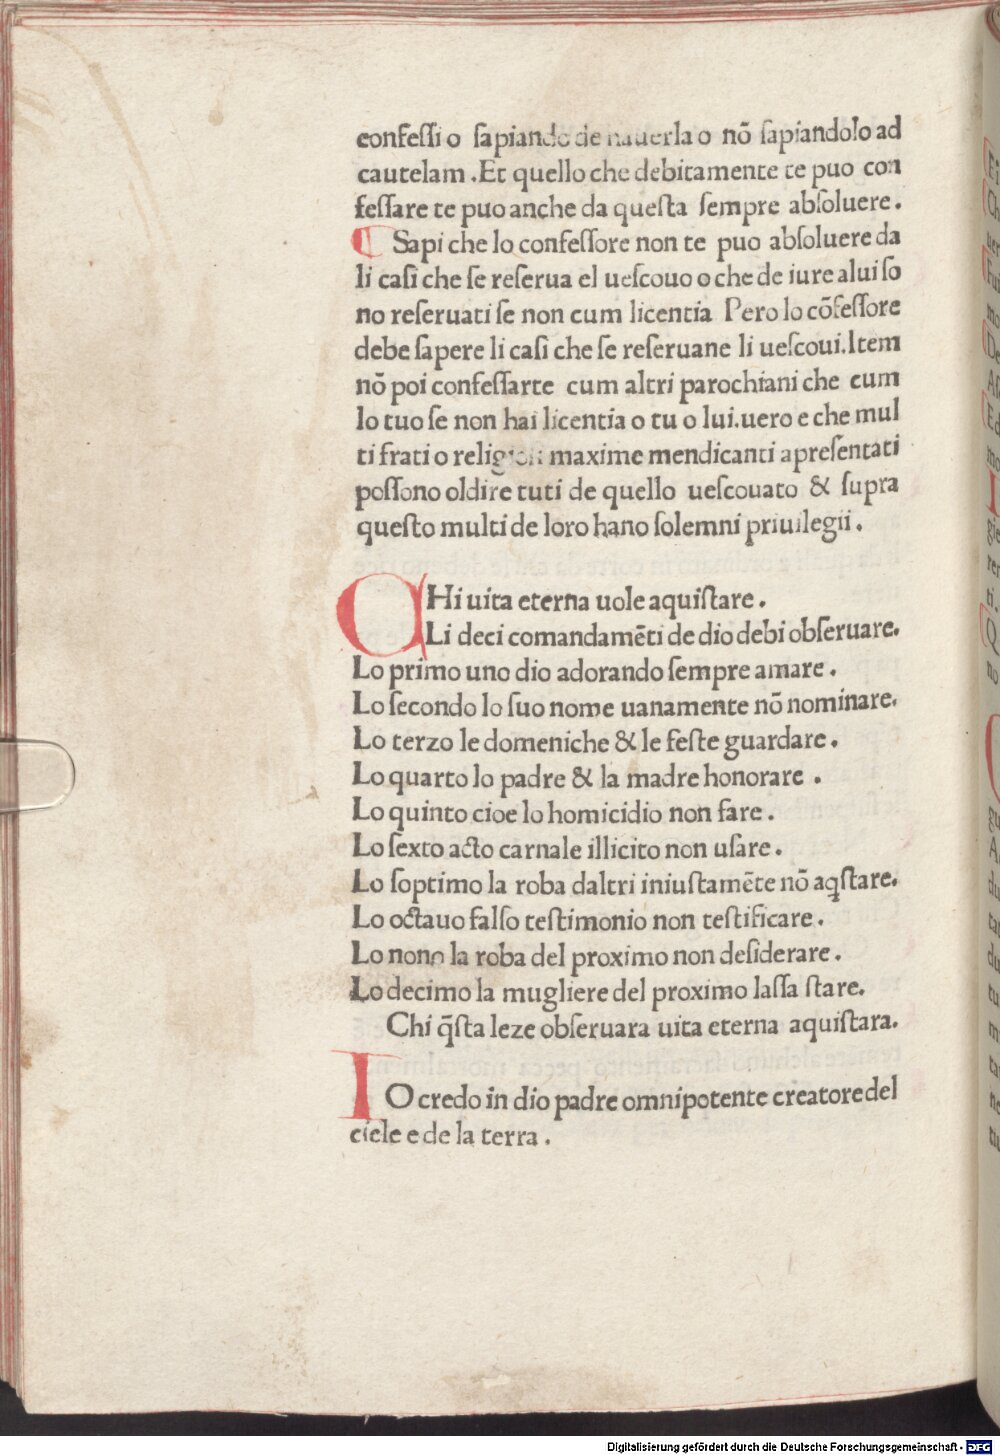 confeſſi o ſapiando de hauerla o nō ſapiandolo ad
cautelam .Et quello che debitamente te puo con
feſſare te puo anche da queſta ſempre abſoluere.
Sapi che lo confeſſore non te puo abſoluere da
li caſi che ſe reſerua el ueſcouo o che de iure alui ſo
no reſeruati ſe non cum licentia Pero lo cōfeſſore
debe ſapere li caſi che ſe reſeruane li ueſcoui.Item
nō poi confeſſarte cum altri parochiani che cum
lo tuo ſe non hai licentia o tu o lui.uero e che mul
ti frati o religioſi maxime mendicanti apreſentati
poſſono oldire tuti de quello ueſcouato & ſupra
queſto multi de loro hano ſolemni priuilegii.
CHi uita eterna uole aquiſtare.
Li deci comandamēti de dio debi obſeruare.
Lo primo uno dio adorando ſempre amare.
Lo ſecondo lo ſuo nome uanamente nō nominare.
Lo terzo le domeniche & le feſte guardare.
Lo quarto lo padre & la madre honorare .
Lo quinto cioe lo homicidio non fare.
Lo ſexto acto carnale illicito non uſare.
Lo ſoptimo la roba daltri iniuſtamēte nō aqſtare.
Lo octauo falſo teſtimonio non teſtificare.
Lo nono la roba del proximo non deſiderare.
Lo decimo la mugliere del proximo laſſa ſtare.
Chi q̄ſta leze obſeruara uita eterna aquiſtara.
IO credo in dio padre omnipotente creatore del
ciele e de la terra.
Digitalisierung gefördert durch die Deutsche Forschungsgemeinschaft - DFG